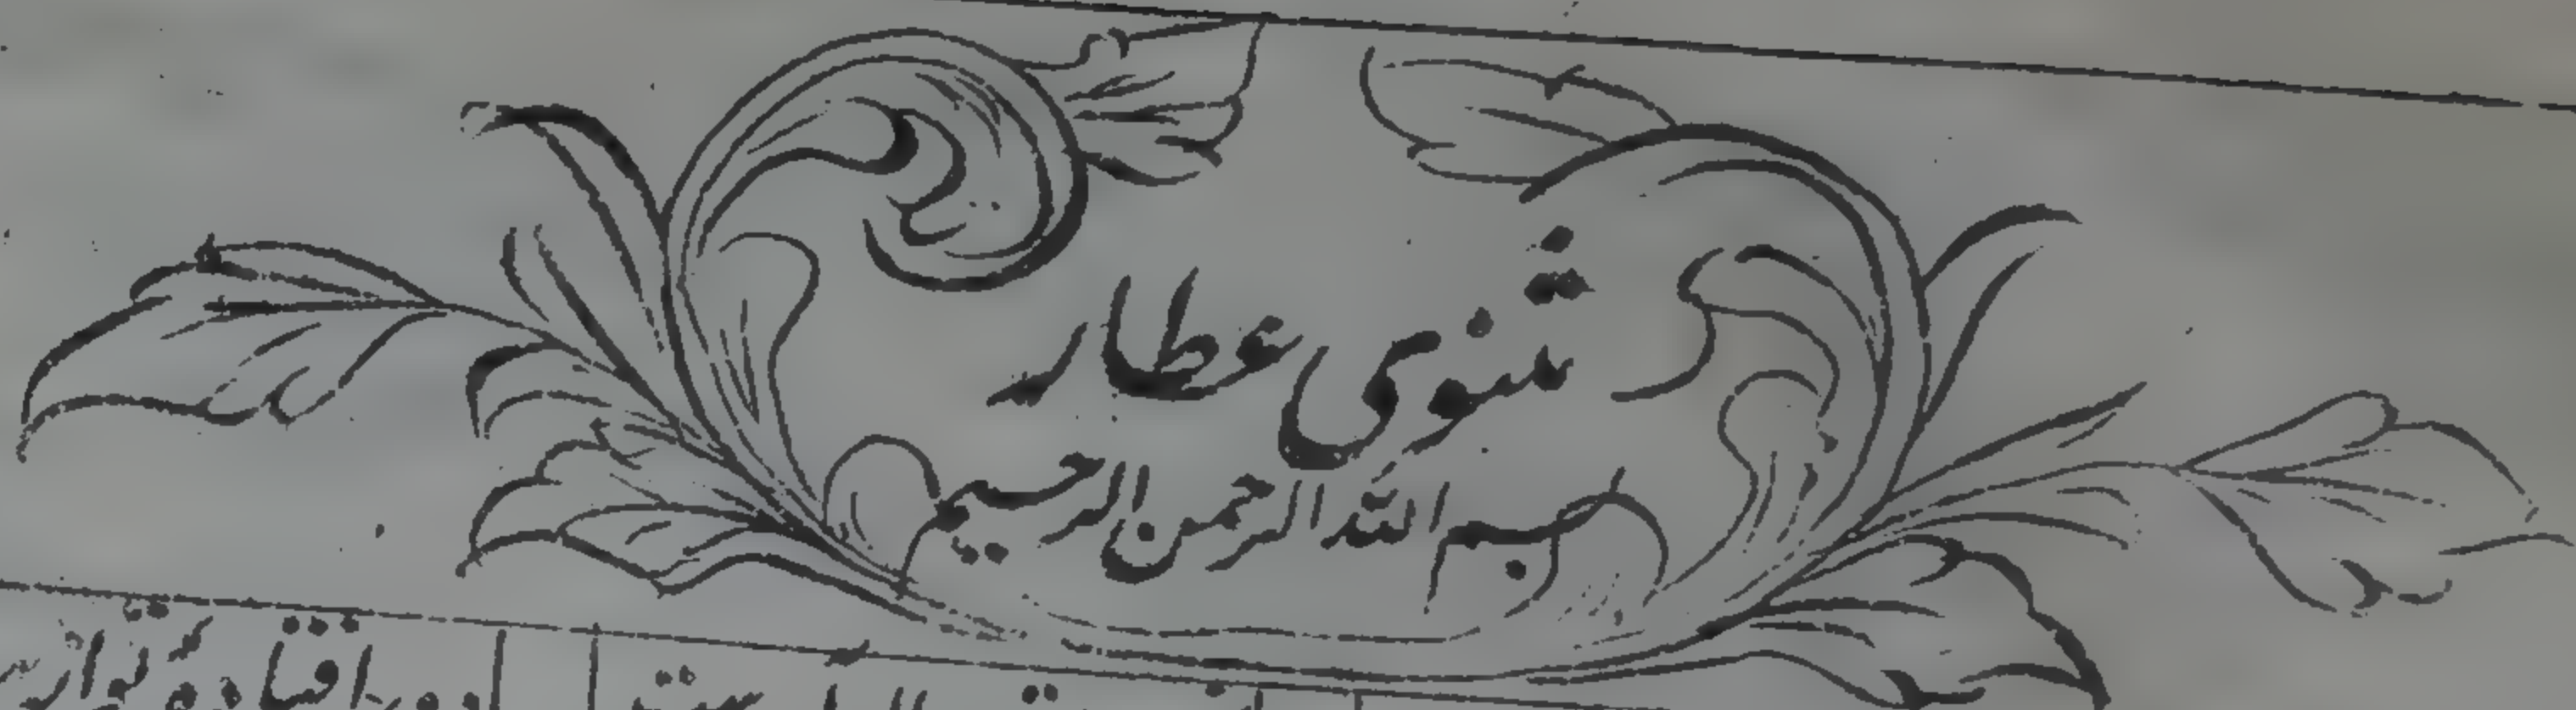 مثنوی عطار
بسم الله الرحمن الرحیم